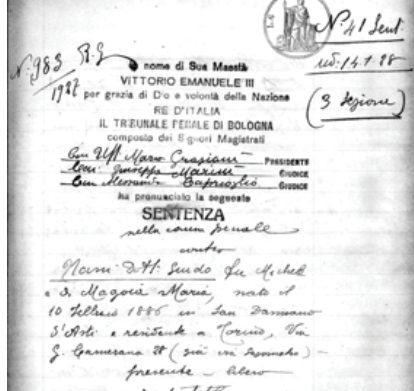 N. 983 R.G
1927
N. 41 Sent.
ud. 14.1.28
(3 Sezione)
nome di Sua Maestà
VITTORIO EMANUELE III
per grazia di Dio e volontà della Nazione
RE D'ITALIA
IL TRIBUNALE PENALE DI BOLOGNA
composto dei Signori Magistrati
Cav. Uff. Mario Graziani PRESIDENTE
Giuseppe Marini GIUDICE
Alessandro Caprioglio GIUDICE
ha pronunciato la seguente
SENTENZA
nella causa penale
contro
Nani Dott. Guido fu Michele
e di Magoia Maria, nato il
10 Febbraio 1886 in San Damiano
d'Asti e residente a Torino, Via
G. Camerana 28 (già in
presente - libero